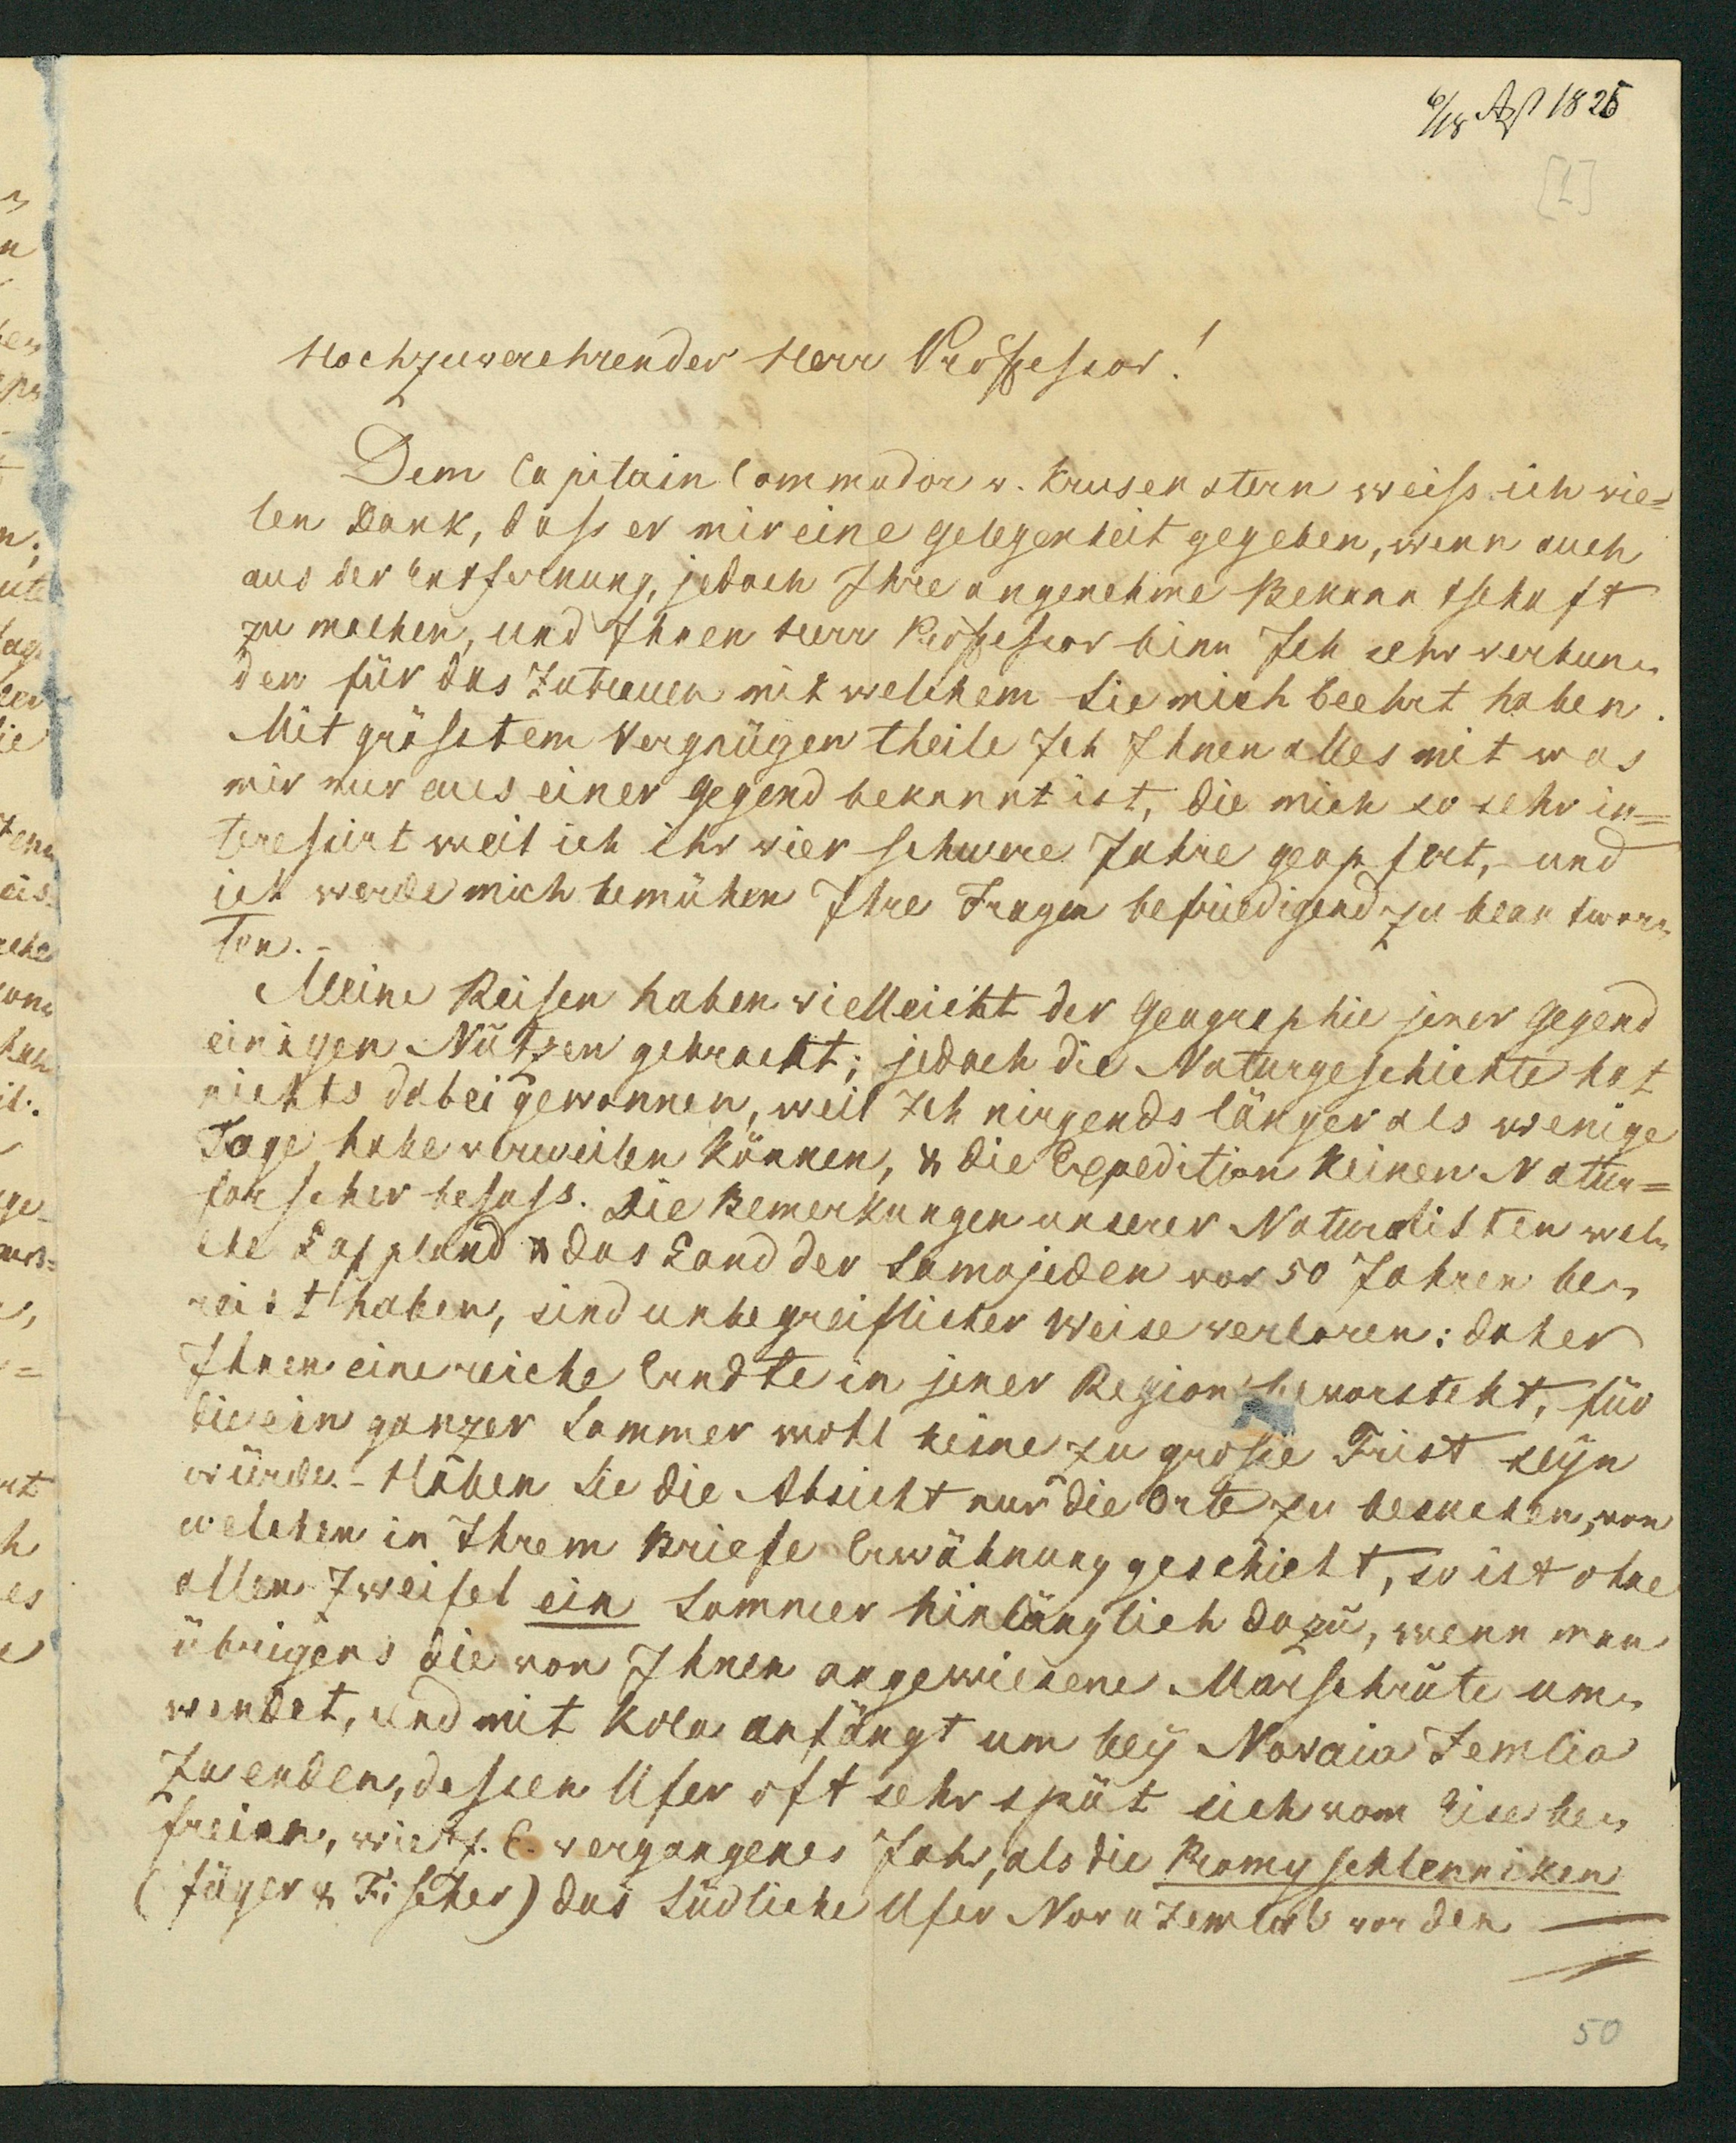 6/18 Apr 1825
[1]
Hochzuverehrender Herr Professor!
Dem Capitain Commodor v. Krusenstern weiss ich vie=
len Dank, dass er mir eine Gelegenheit gegeben, wenn auch
aus der Entfernung, jedoch Ihre angenehme Bekanntschaft
zu machen, und Ihnen Herr Professor binn Ich sehr verbun=
den für das Zutrauen mit welchem Sie mich beehrt haben.
Mit grösstem Vergnügen theile Ich Ihnen alles mit was
mir nur aus einer Gegend bekannt ist, die mich so sehr in=
teressirt weil ich ihr vier schwere Jahre geopfert, und
ich werde mich bemühen Ihre Fragen befriedigend zu beantwor=
ten. –
Meine Reisen haben vielleicht der Geographie jener Gegend
einigen Nutzen gebracht; jedoch die Naturgeschichte hat
nichts dabei gewonnen, weil Ich nirgends länger als wenige
Tage habe verweilen können, & die Expedition keinen Natur=
forscher besass. Die Bemerkungen unserer Naturalisten wel=
che Lappland & das Land der Samojeden vor 50 Jahren be=
reist haben, sind unbegreiflicher Weise verloren: daher
Ihnen eine reiche Erndte in jener Region bevorsteht, für
die ein ganzer Sommer wohl keine zu grosse Frist seyn
würde. – Haben Sie die Absicht nur die Orte zu besuchen, von
welchen in Ihrem Briefe Erwähnung geschieht, so ist ohne
allen Zweifel ein Sommer hinlänglich dazu, wenn man
übrigens die von Ihnen angewiesene Marschrute um=
wendet, und mit Kola anfängt um bey Novaia Zemlia
zu enden, dessen Ufer oft sehr spät sich vom Eise be=
freien, wie z. E. vergangenes Jahr, als die Promyschlenniken
(Jäger & Fischer) das Südliche Ufer Nova Zemlas vor den
50